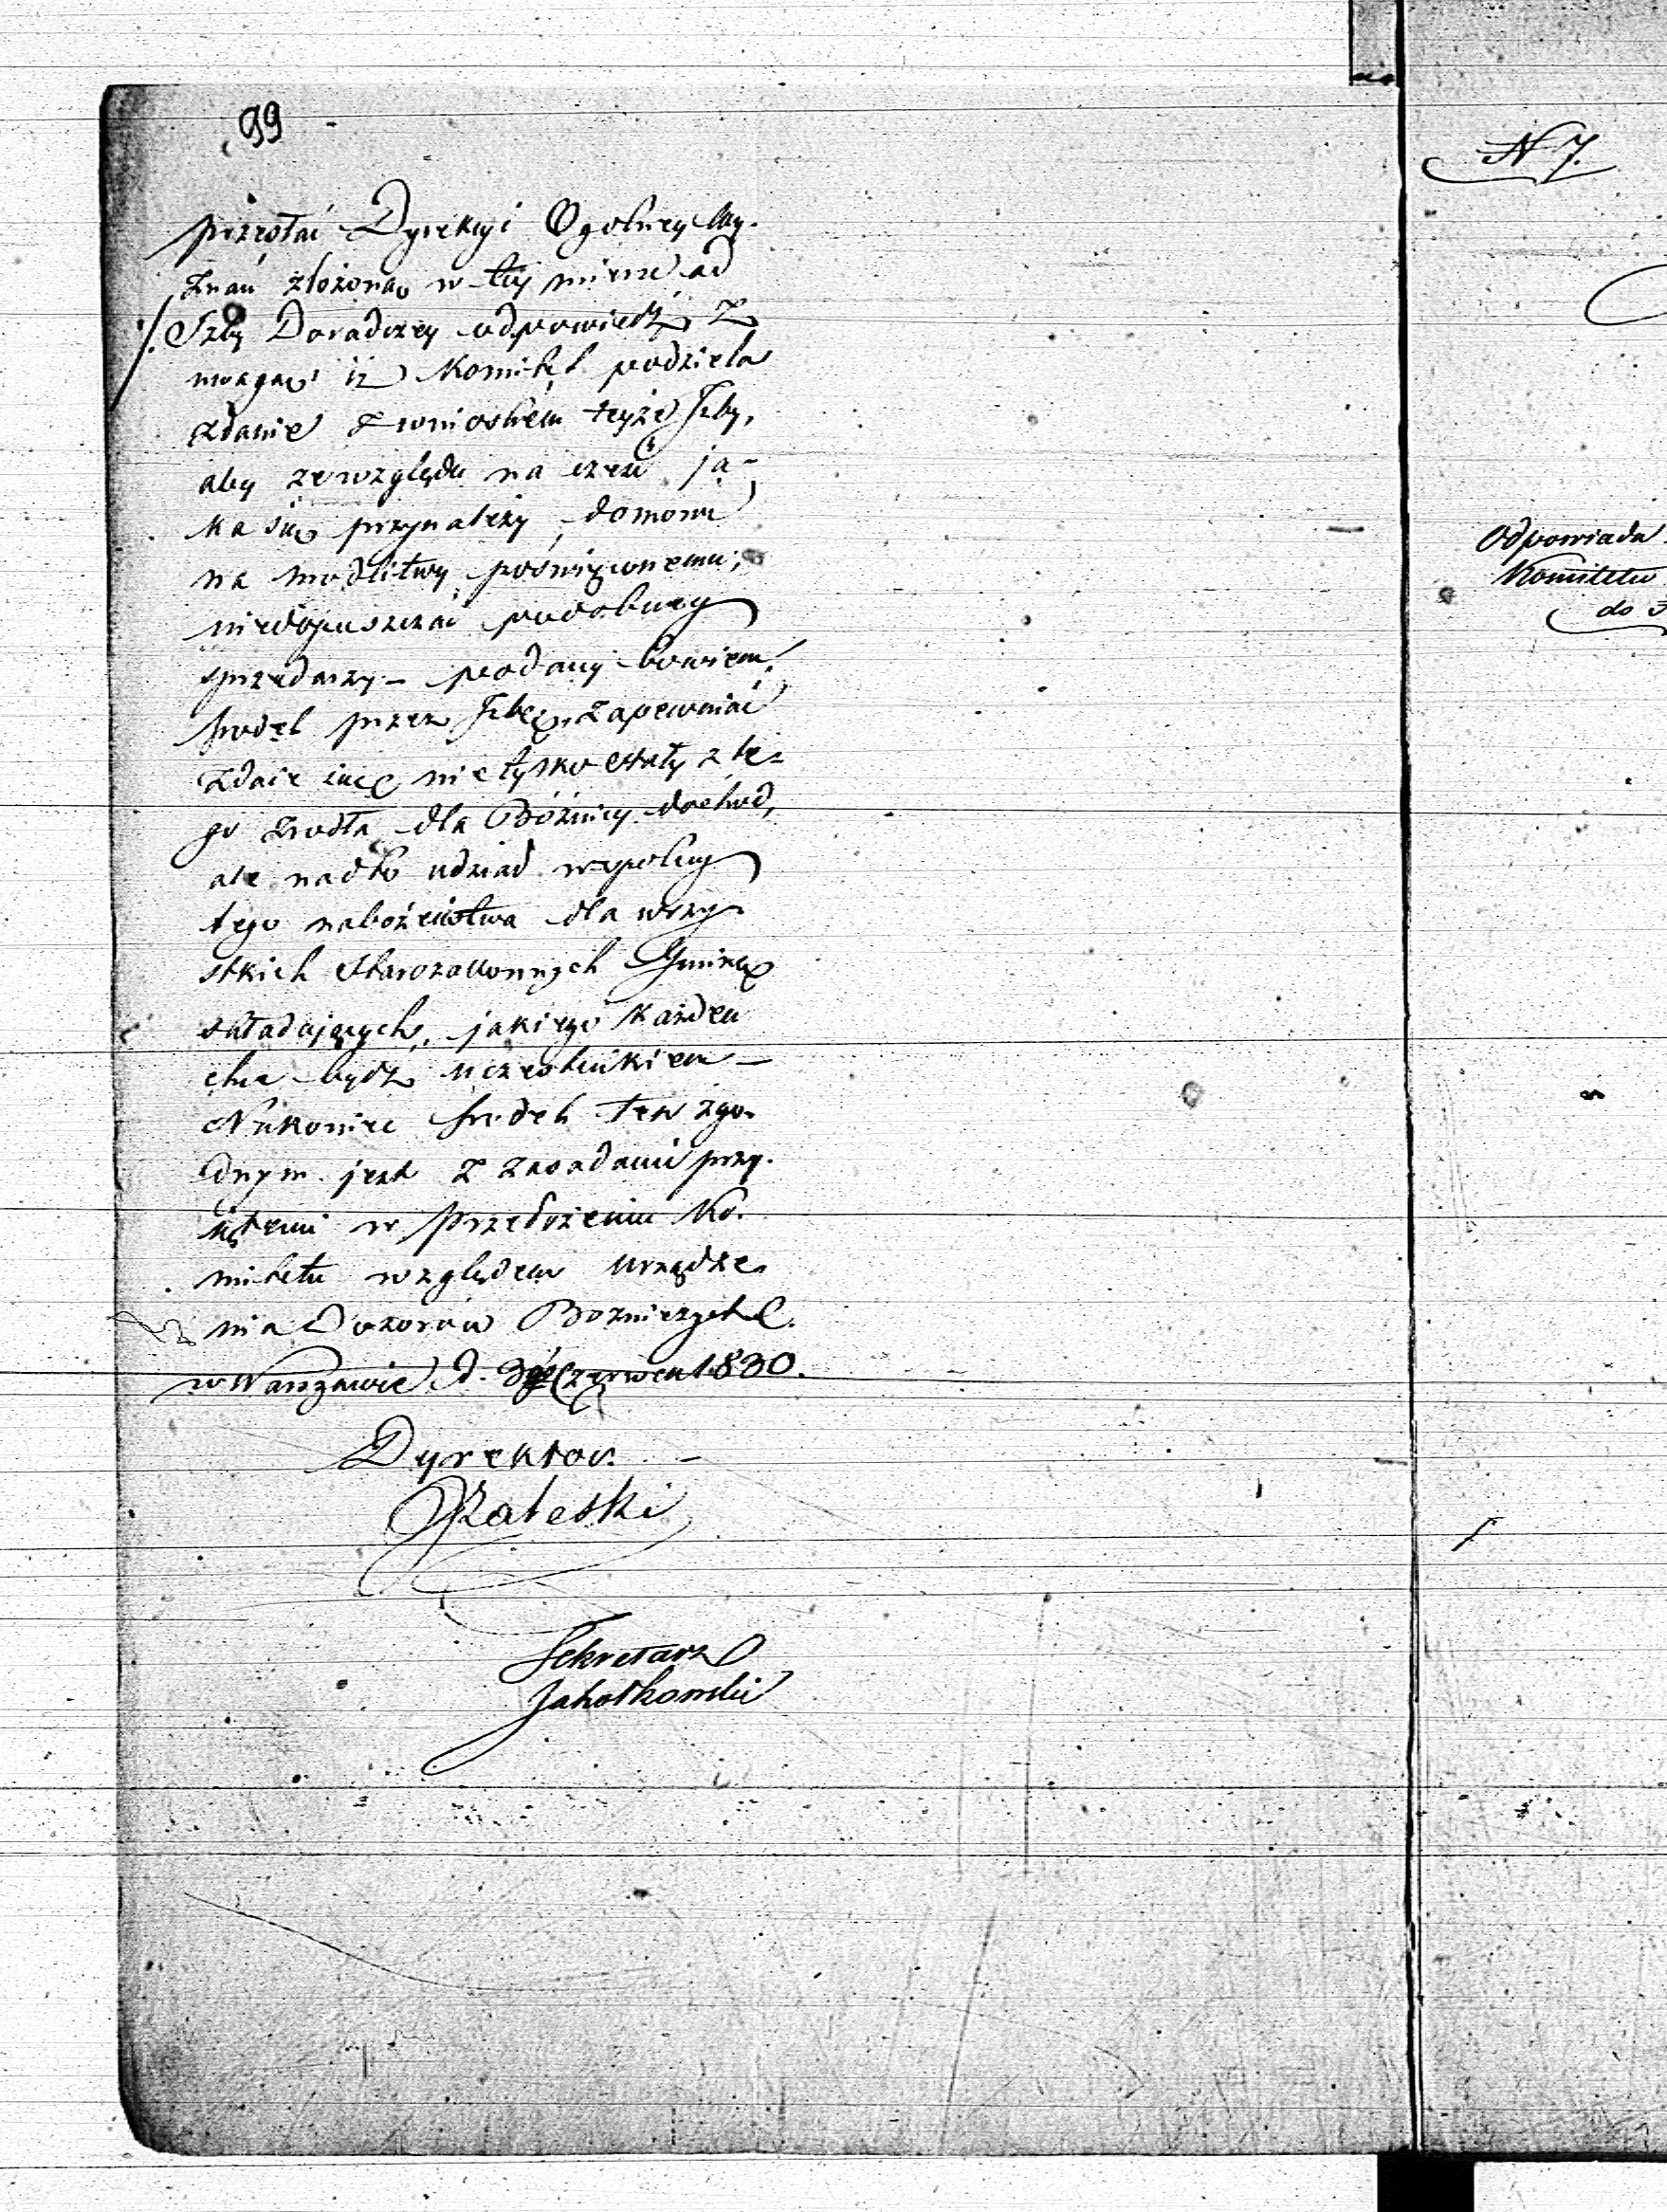 99
przesłać Dyrekcyi Ogolney Wy-
znań złożoną w tey mierze od
Izby Doradczey odpowiedź, z
uwagą iż Komitet podziela
zdanie z wnioskiem teyże Izby,
aby ze względu na cześć ja-
ka się przynależy domowi
na modlitwy poświęconemu,
niedopuszczać podobney
sprzedaży – podany bowiem
srodek przez Izbę, zapewniać
zdaie się nietylko stały z te-
go zrodła dla Bóżnicy dochod,
ale nadto udział wspolny
tego nabożeństwa dla wszy-
stkich starozakonnych Gminę
składających, jakiego każden
chce bydź uczestnikiem –
Nakoniec srodek ten zgo-
dnym jest z zasadami przy-
iętemi w przedłożeniu Ko-
mitetu względem urządze-
nia Dozorów Bożniczych.
w Warszawie d. 3 Czerwca 1830.
Dyrektor
Zaleski
Sekretarz
N 7.
Odpowiada
Komitetu
do